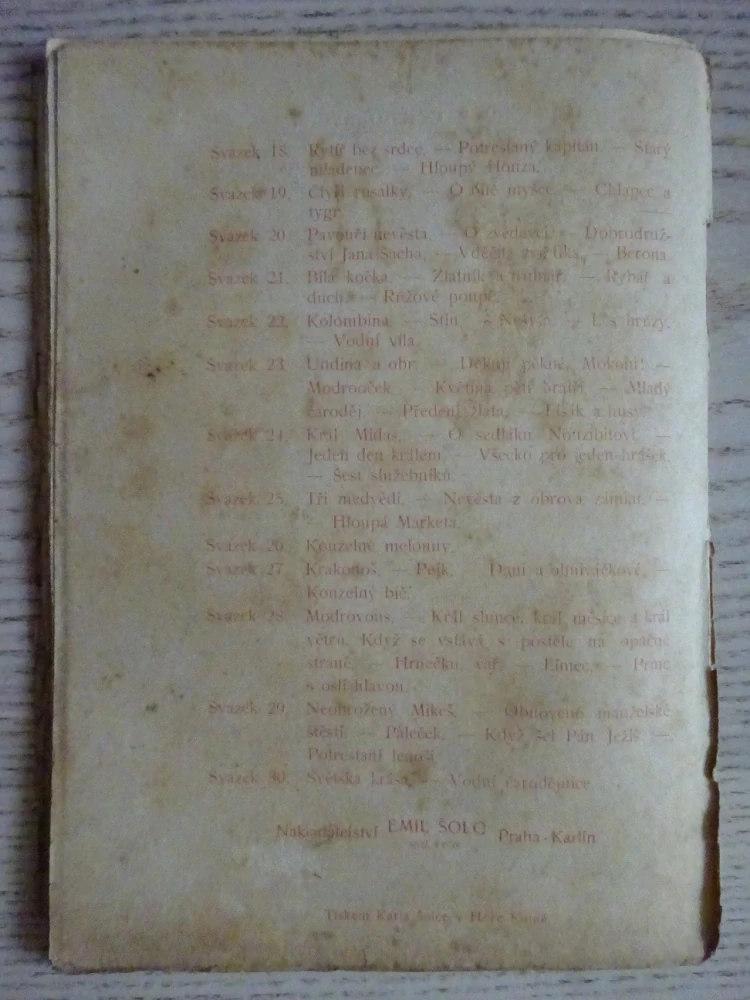 Svazek 18. Rytíř bez srdce. — Potrestaný kapitán. — Starý
mládenec. — Hloupý Honza.
Svazek 19. Čtyři rusalky. — O ptyšce. — Chlapec a
tygr.
Svazek 20. Pavoučí nevěsta. — O zvědavci. — Dobrodruž-
ství Jana Šacha. — Vděčná — Berona.
Svazek 21. Bílá kočka. — Zlatník a — Rybář a
duch. — Růžové poupě.
Svazek 22. Kolombina. — Stín. — — Les hrůzy.
— Vodní víla.
Svazek 23. Undina a obr. — Děkuji pěkně, Mokohi! —
Modrooček. — Květina pěti bratří. — Mladý
čaroděj. — Předení zlata. — Lišák a husy.
Svazek 24. Král Midas. — O sedláku Nouzibitovi. —
Jeden den králem. — Všecko pro jeden hrášek.
— Šest služebníků.
Svazek 25. Tři medvědi. — Nevěsta z obrova zámku. —
— Hloupá Marketa.
Svazek 26. Kouzelné melouny.
Svazek 27. Krakonoš. — Pejk. Dani a —
Kouzelný bič.
Svazek 28. Modrovous. — Král slunce, král měsíce a král
větru. Když se vstává s postele na opačné
straně. — Hrnečku, vař. — Eimec. — Princ
s oslí hlavou.
Svazek 29. Neohrožený Mikeš. — Obnovené manželské
štěstí. — Páleček. — Když šel Pán Ježíš. —
Potrestaní lenoši.
Svazek 30. Světská krása. — Vodní čarodějnice.
Nakladatelství EMIL ŠOLC Praha-Karlín
Tiskem Karla Šolce v Hoře Kutné